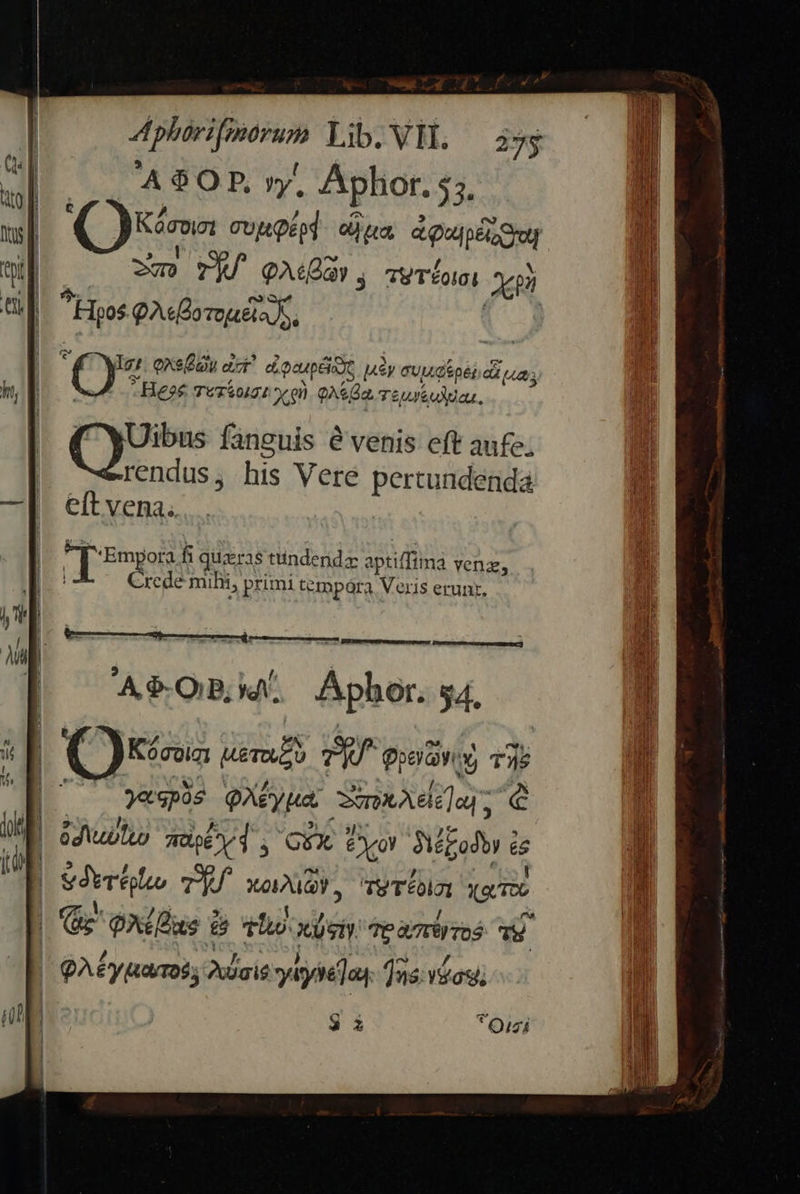 Aphorismorum Lib. VII. 275
ἈΦΟΡ. νγʹ. Aphor. 53.
Ὁκόσοισι συμφέρ{ει} αἷμα ἀφαιρέεσθαι
ἀπὸ τῶν φλεβῶν, τουτέοισι χρὴ
Ἦρος φλεβοτομέεσθαι,
Οἷσι φλεβῶν ἀπ' ἀφαιρεῖσθαι μὲν συμφέρει αἷμα,
Ἦρος τουτέοισι χρὴ φλέβα τεμνέμεναι.
QUibus sanguis è venis est aufe-
rendus, his Vere pertundenda
est vena.
TEmpora si quæras tundendæ aptissima venæ,
Crede mihi, primi tempora Veris erunt.
ἈΦΟΡ. νδʹ. Aphor. 54.
Ὁκόσοισι μεταξὺ τῶν φρενῶν καὶ τῆς
γαστρὸς φλέγμα ἀποκλείεται, καὶ
ὀδύνην παρέχει, οὐκ ἔχον διέξοδον ἐς
οὐδετέρην τῶν κοιλιῶν, τουτέοισι κατὰ
τὰς φλέβας ἐς τὴν κύστιν τραπέντος τοῦ
φλέγματος, λύσις γίγνεται τῆς νούσου.
S 2 Οἷσι